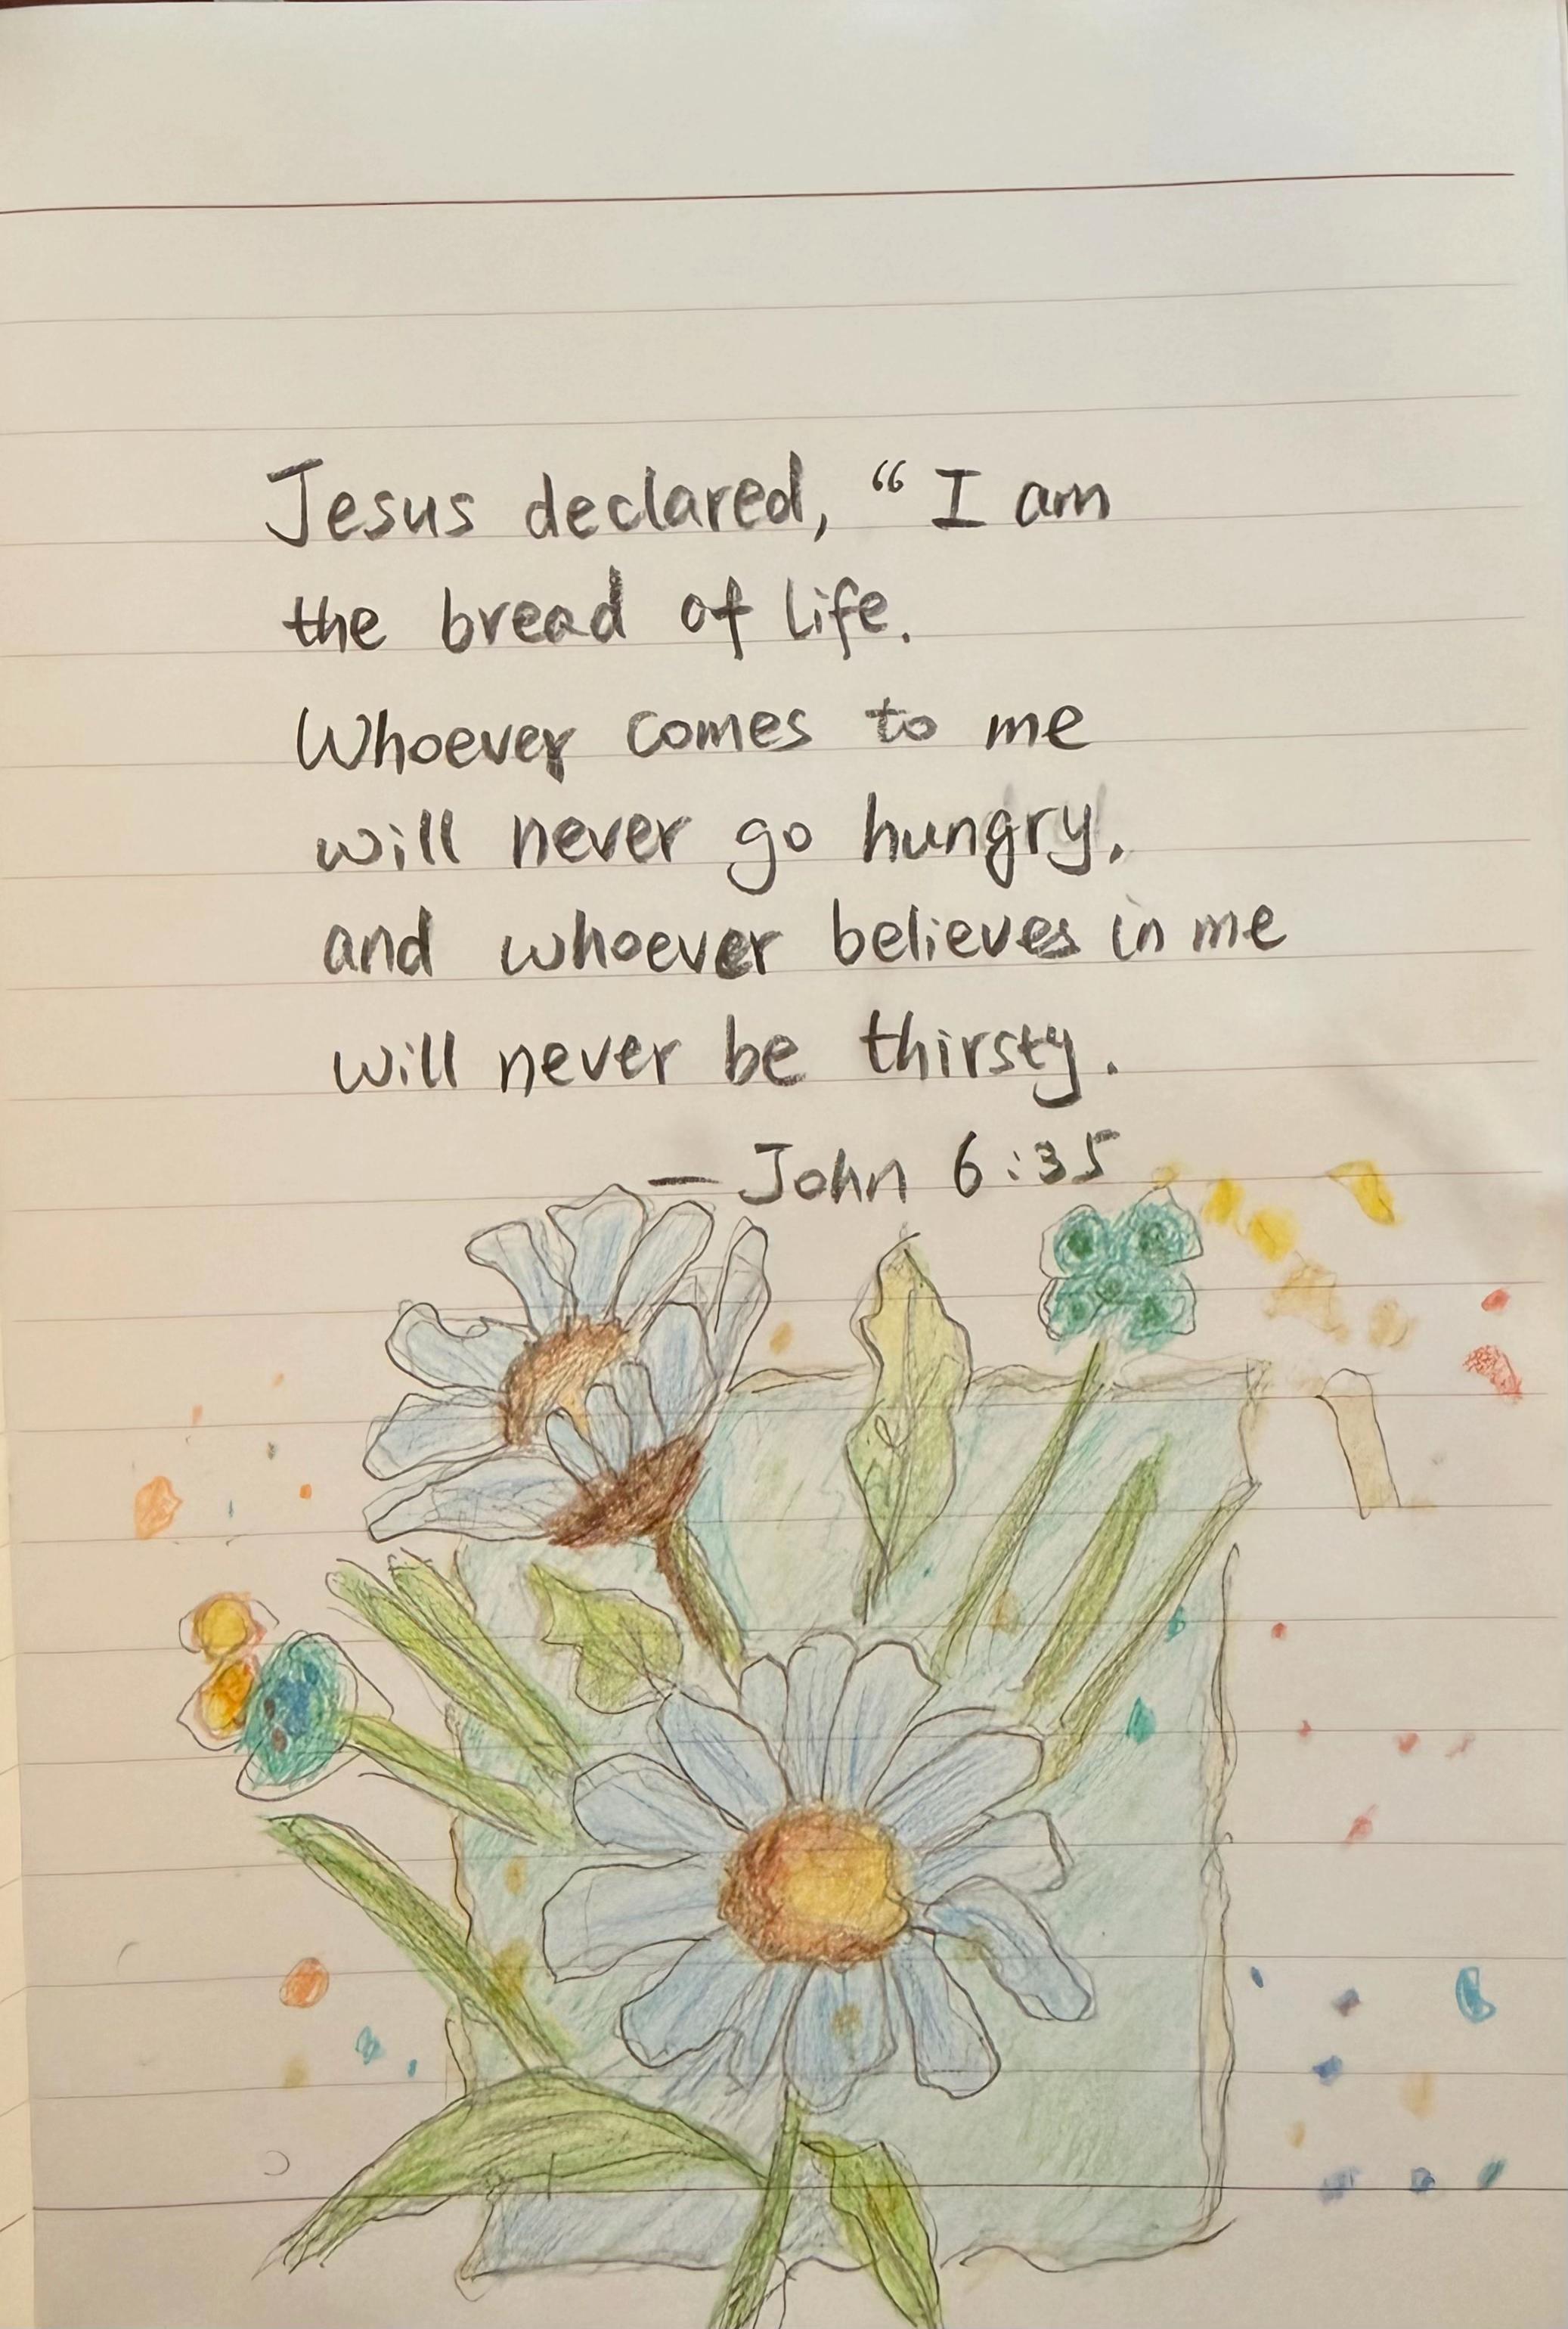 Jesus declared, “I am
the bread of life.
Whoever comes to me
will never go hungry,
and whoever believes in me
will never be thirsty.
— John 6:35